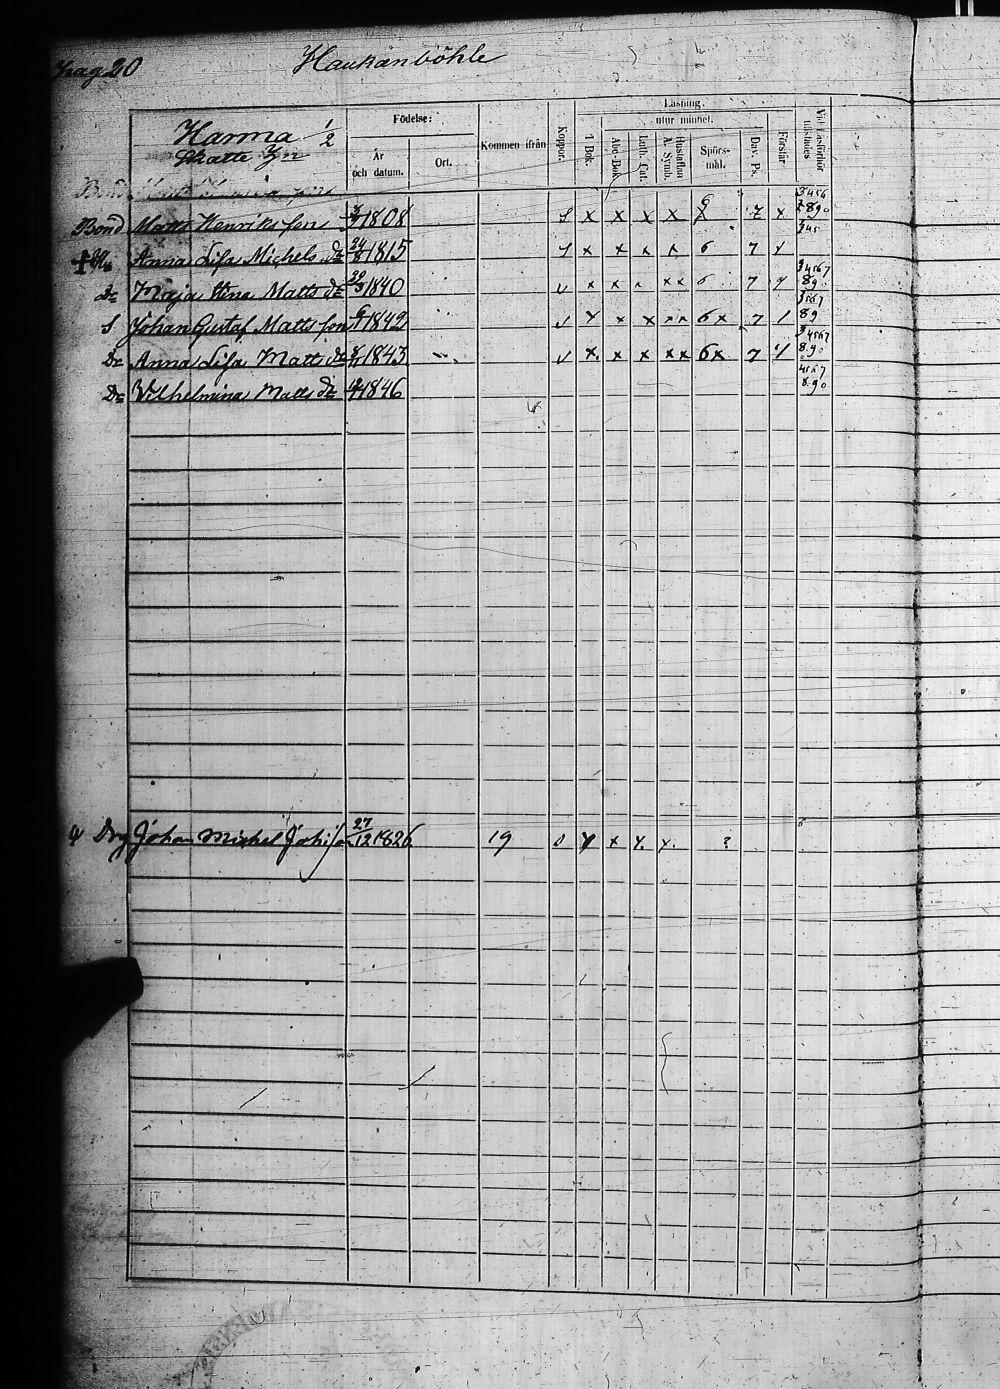 pag 20 Haukånböhle
Harma 1/2
Skatte Hn
Födelse:
År och datum.
Ort.
Kommen ifrån
Koppor.
Läsning,
utur minnet.
I Bok.
Abc-Bok.
Luth. Cat.
Hustaflan A. Symb.
Spörs-mål.
Dav. Ps.
Förstår
Vid Läsförhör tillstädes
Bond Matts Henriks son 1808 x x x x 6 7 x 3456 7890
Anna Lisa Michels dr 24/8 1815 x x x 6 7 345
Dr Maja Stina Matts dr 29/3 1840 x x x x 6 7 34567 89
S Johan Gustaf Matts son 6/1 1842 x x x x 6x 7 3567 89
Dr Anna Lisa Matts dr 1843 x x x x x 6x 7 34567 890
Dr Vilhelmina Matts dr 1846 4567 890
Drg Johan Michel Johisson 27/12 1826 19 x ?